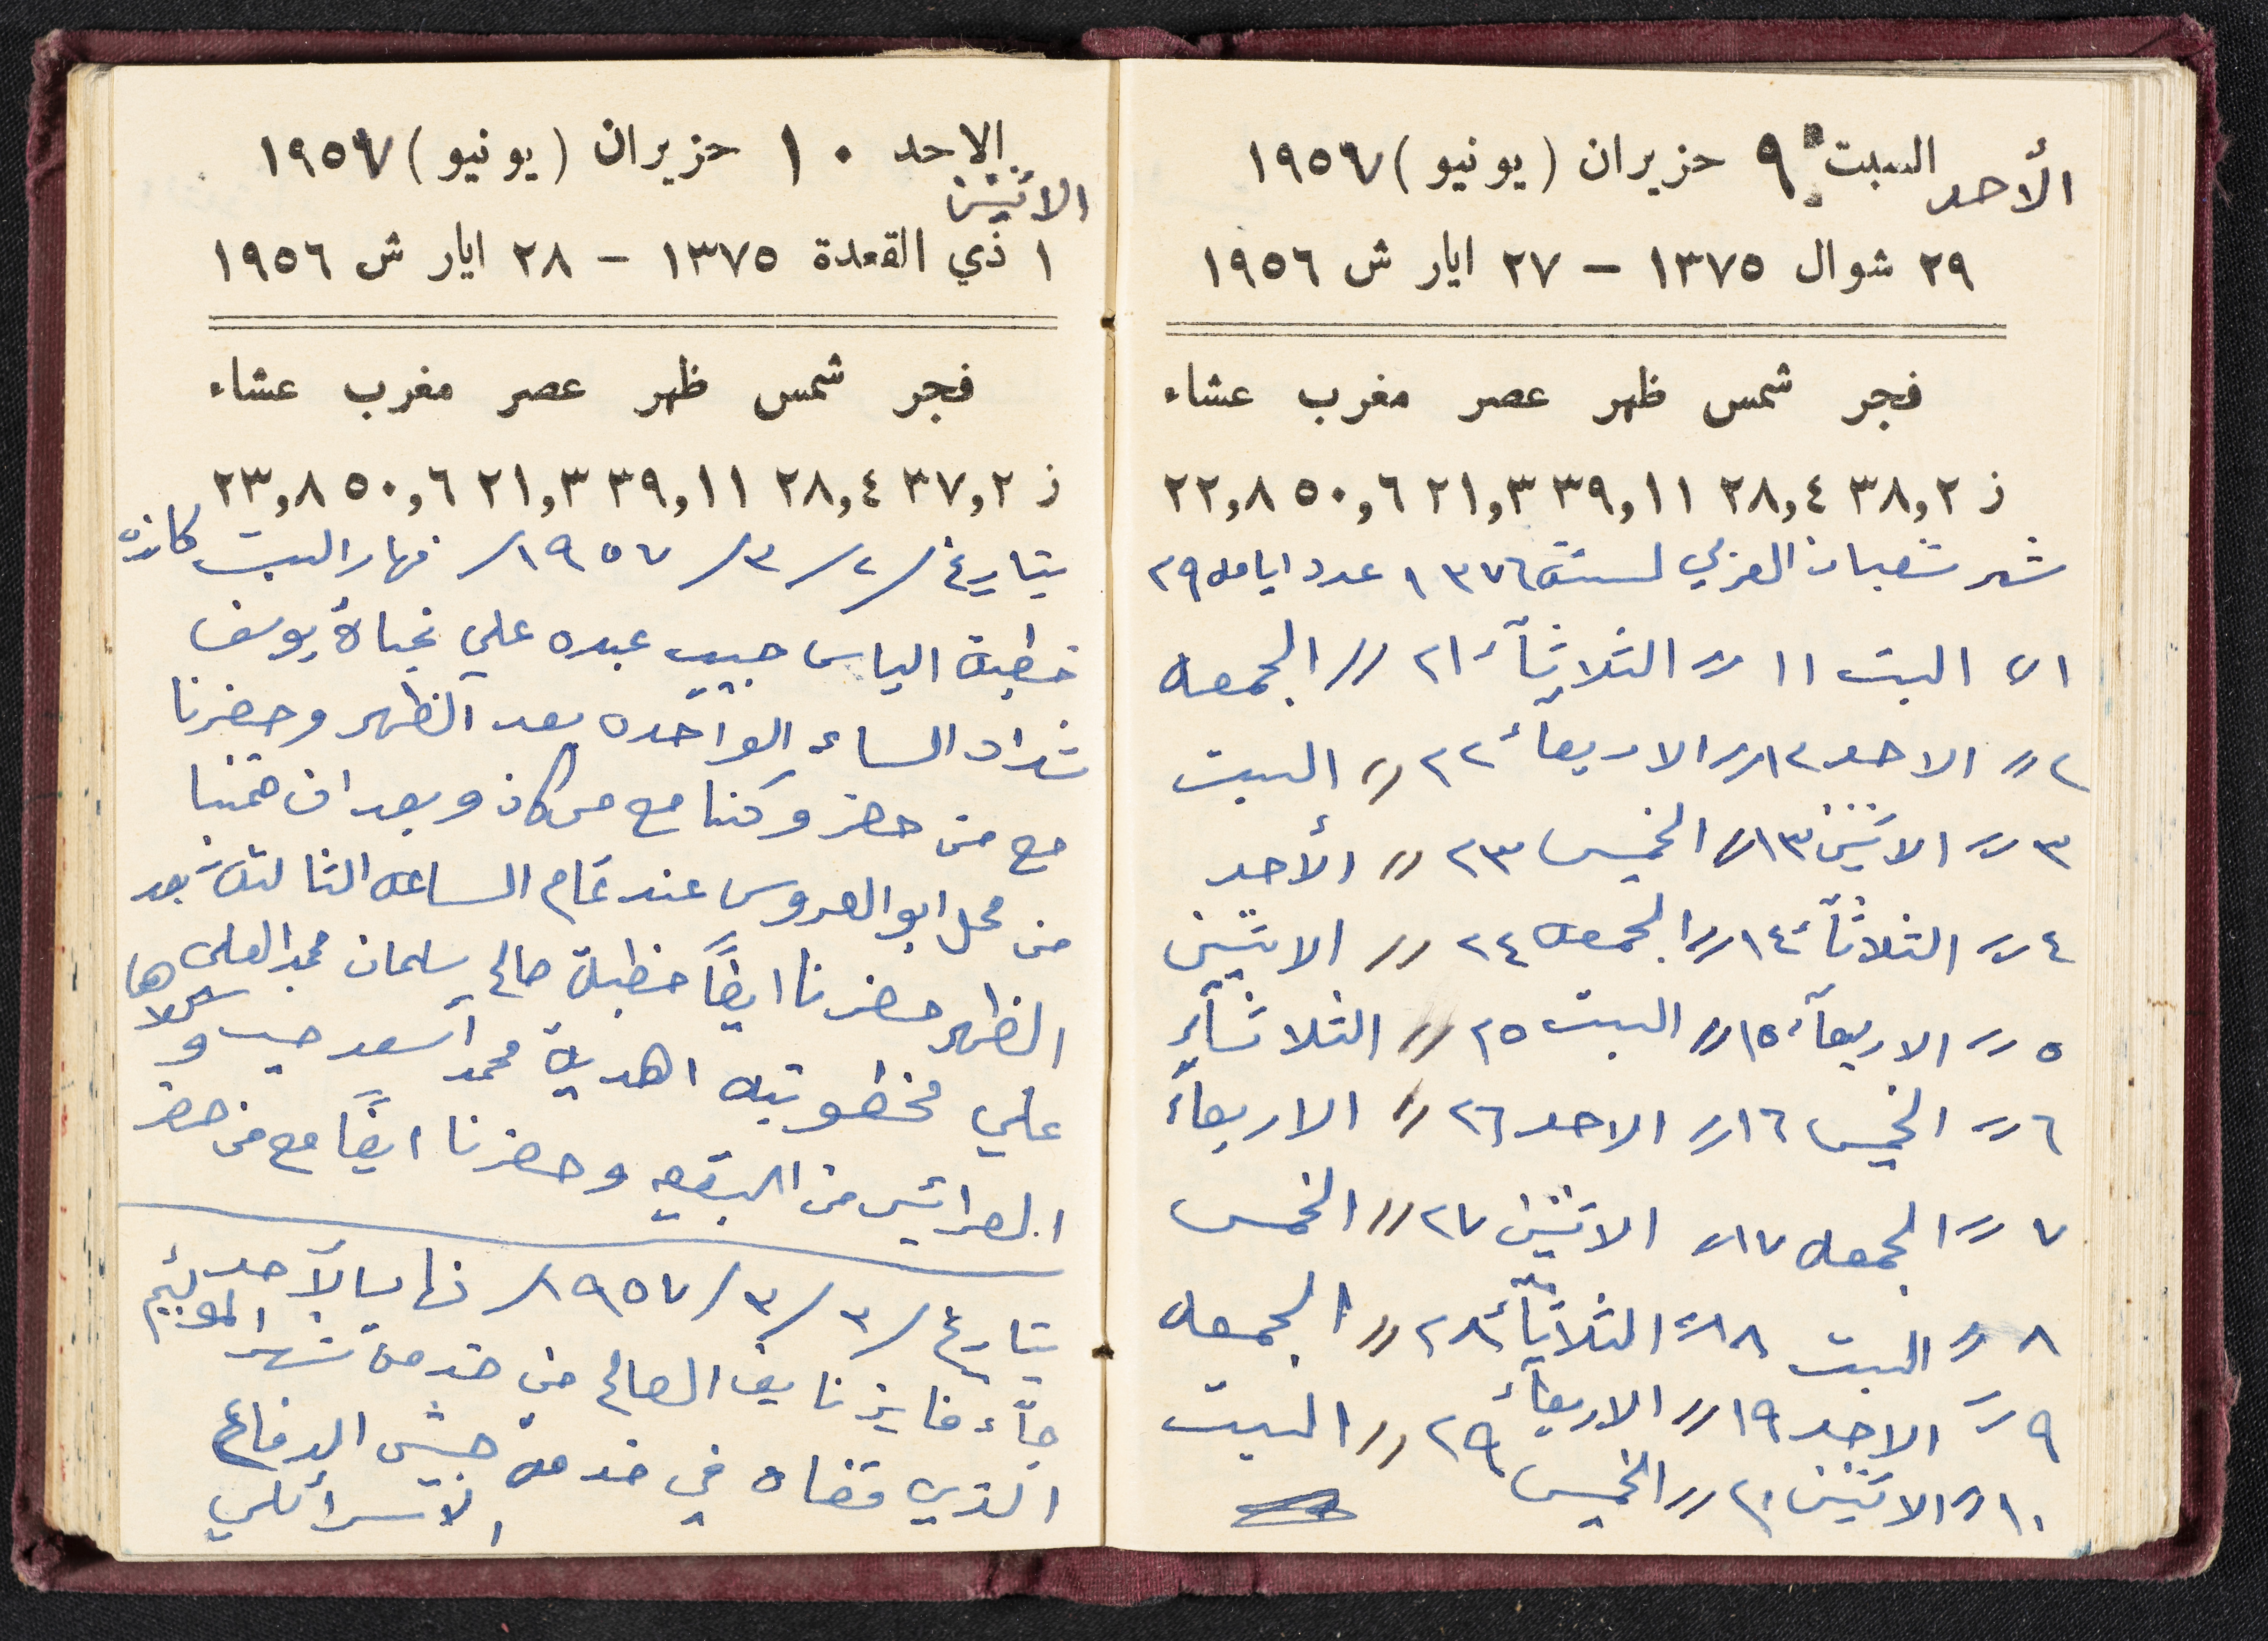 الأحد السبت ٩ حزيران (يونيو) ١٩٥٧
٢٩ شوال ١٣٧٥ - ٢٧ ايار ش ١٩٥٦
فجر شمس ظهر عصر مغرب عشاء
ز ٣٨,٢ ٢٨,٤ ٣٩,١١ ٢١,٣ ٥٠,٦ ٢٢,٨
شهر شعبان العربي لسنة ١٣٧٦ عدد ايامه ٢٩
١ السبت ١١ // الثلاثآء ٢١ // الجمعه
٢ // الاحد ١٢ // الاربعاء ٢٢ // السبت
٣ // الاثنين ١٣ // الخميس ٢٣ // الأحد
٤ // الثلاثآء ١٤ // الجمعه ٢٤ // الاثنين
٥ // الاربعآء ١٥ // السبت ٢٥ // الثلاثآء
٦ // الخميس ١٦ // الاحد ٢٦ // الاربعآء
٧ // الجمعه ١٧ // الاثنين ٢٧ // الخمس
٨ // السبت ١٨ // الثلاثآء ٢٨ // الجمعه
٩ // الاحد ١٩ // الاربعآء ٢٩ // السبت
١٠ // الاثنين ٢٠ // الخميس
الاحد ١٠ حزيران (يونيو) ١٩٥٧
الاثنين
١ ذي القعدة ١٣٧٥ - ٢٨ ايار ش ١٩٥٦
فجر شمس ظهر عصر مغرب عشاء
ز ٣٧,٢ ٢٨,٤ ٣٩,١١ ٢١,٣ ٥٠,٦ ٢٣,٨
بتاريخ /٢/٣/١٩٥٧/ نهار السبت كانة
خطبة الياس حبيب عبده علي نجاة يوسف
شداد الساعه الواحده بعد الظهر وحضرنا
مع من حضر وكنا مع من كان وبعد ان قمنا
من محل ابو العروس عند تمام الساعه الثالثة بعد
الظهر حضرنا ايضاً خطبة صالح سلمان محمد العلي
علي مخطوبته اهدية محمد أسعد حبيب وكلاها
العرائس من البقيعه وحضرنا ايضاً مع من حضر
بتاريخ /٣/٣/١٩٥٧/ نهار الأحد
جآء فايز نايف الصالح من خدمة شهر
الذي قضاه في خدمة جيش الدفاع
الاسرائلي